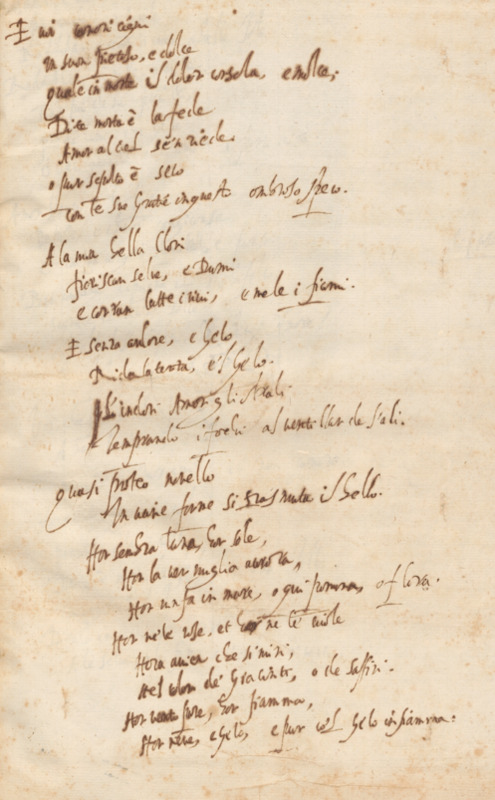 E voi canori cigni
in suon pietoso, e dolce
quale in morte il dolor consola, e molce;
Dite morta è la fede
Amor al ciel sen riede
o pur sepolto è solo
con te sue gratie in questo ombroso speco.
A la mia bella Clori
fioriscan selve, e Dumi
e corran latte i rivi, e mele i fiumi.
E senza ardore, e gelo
Rida la terra, e 'l Cielo.
L'indori Amor gli strali
Temprando i fochi al ventillar de l'ali.
Quasi Proteo novello
In varie forme si trasmuta il bello.
Hor sembra luna, hor sole,
Hor la vermiglia aurora,
Hor ninfa in mare, o qui pomona, o flora.
Hor ne le rose, et hor ne le viole
Hora avien che si miri,
nel color de' Giacinti, o de saffiri.
Hor vento pure, hor fiamma,
Hor neve, e gelo, e pur col gelo infiamma.